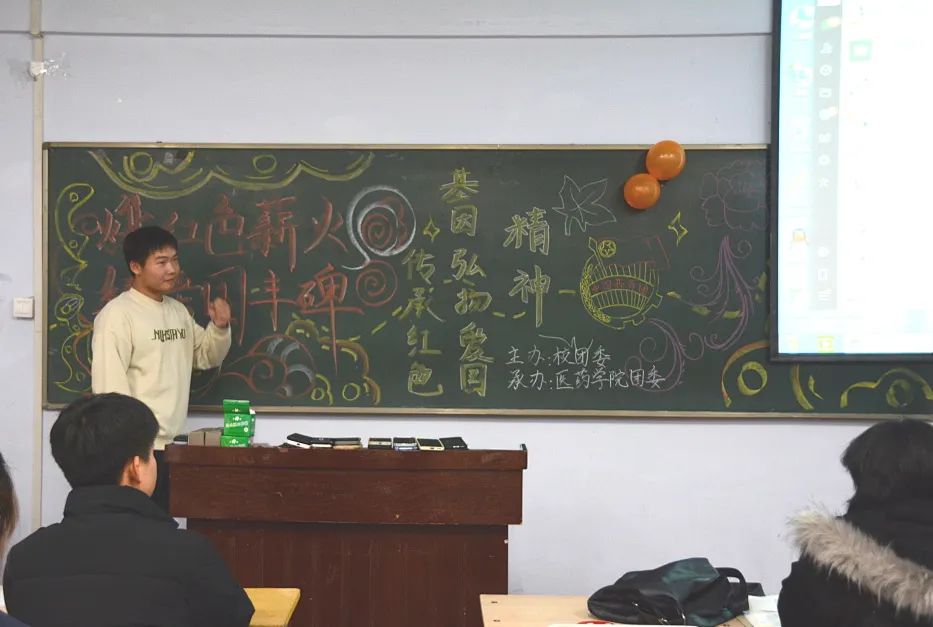 红色薪火
国丰碑
传承红色
基因
弘扬爱国
精神
中国共青团
主办:校团委
承办:医药学院团委